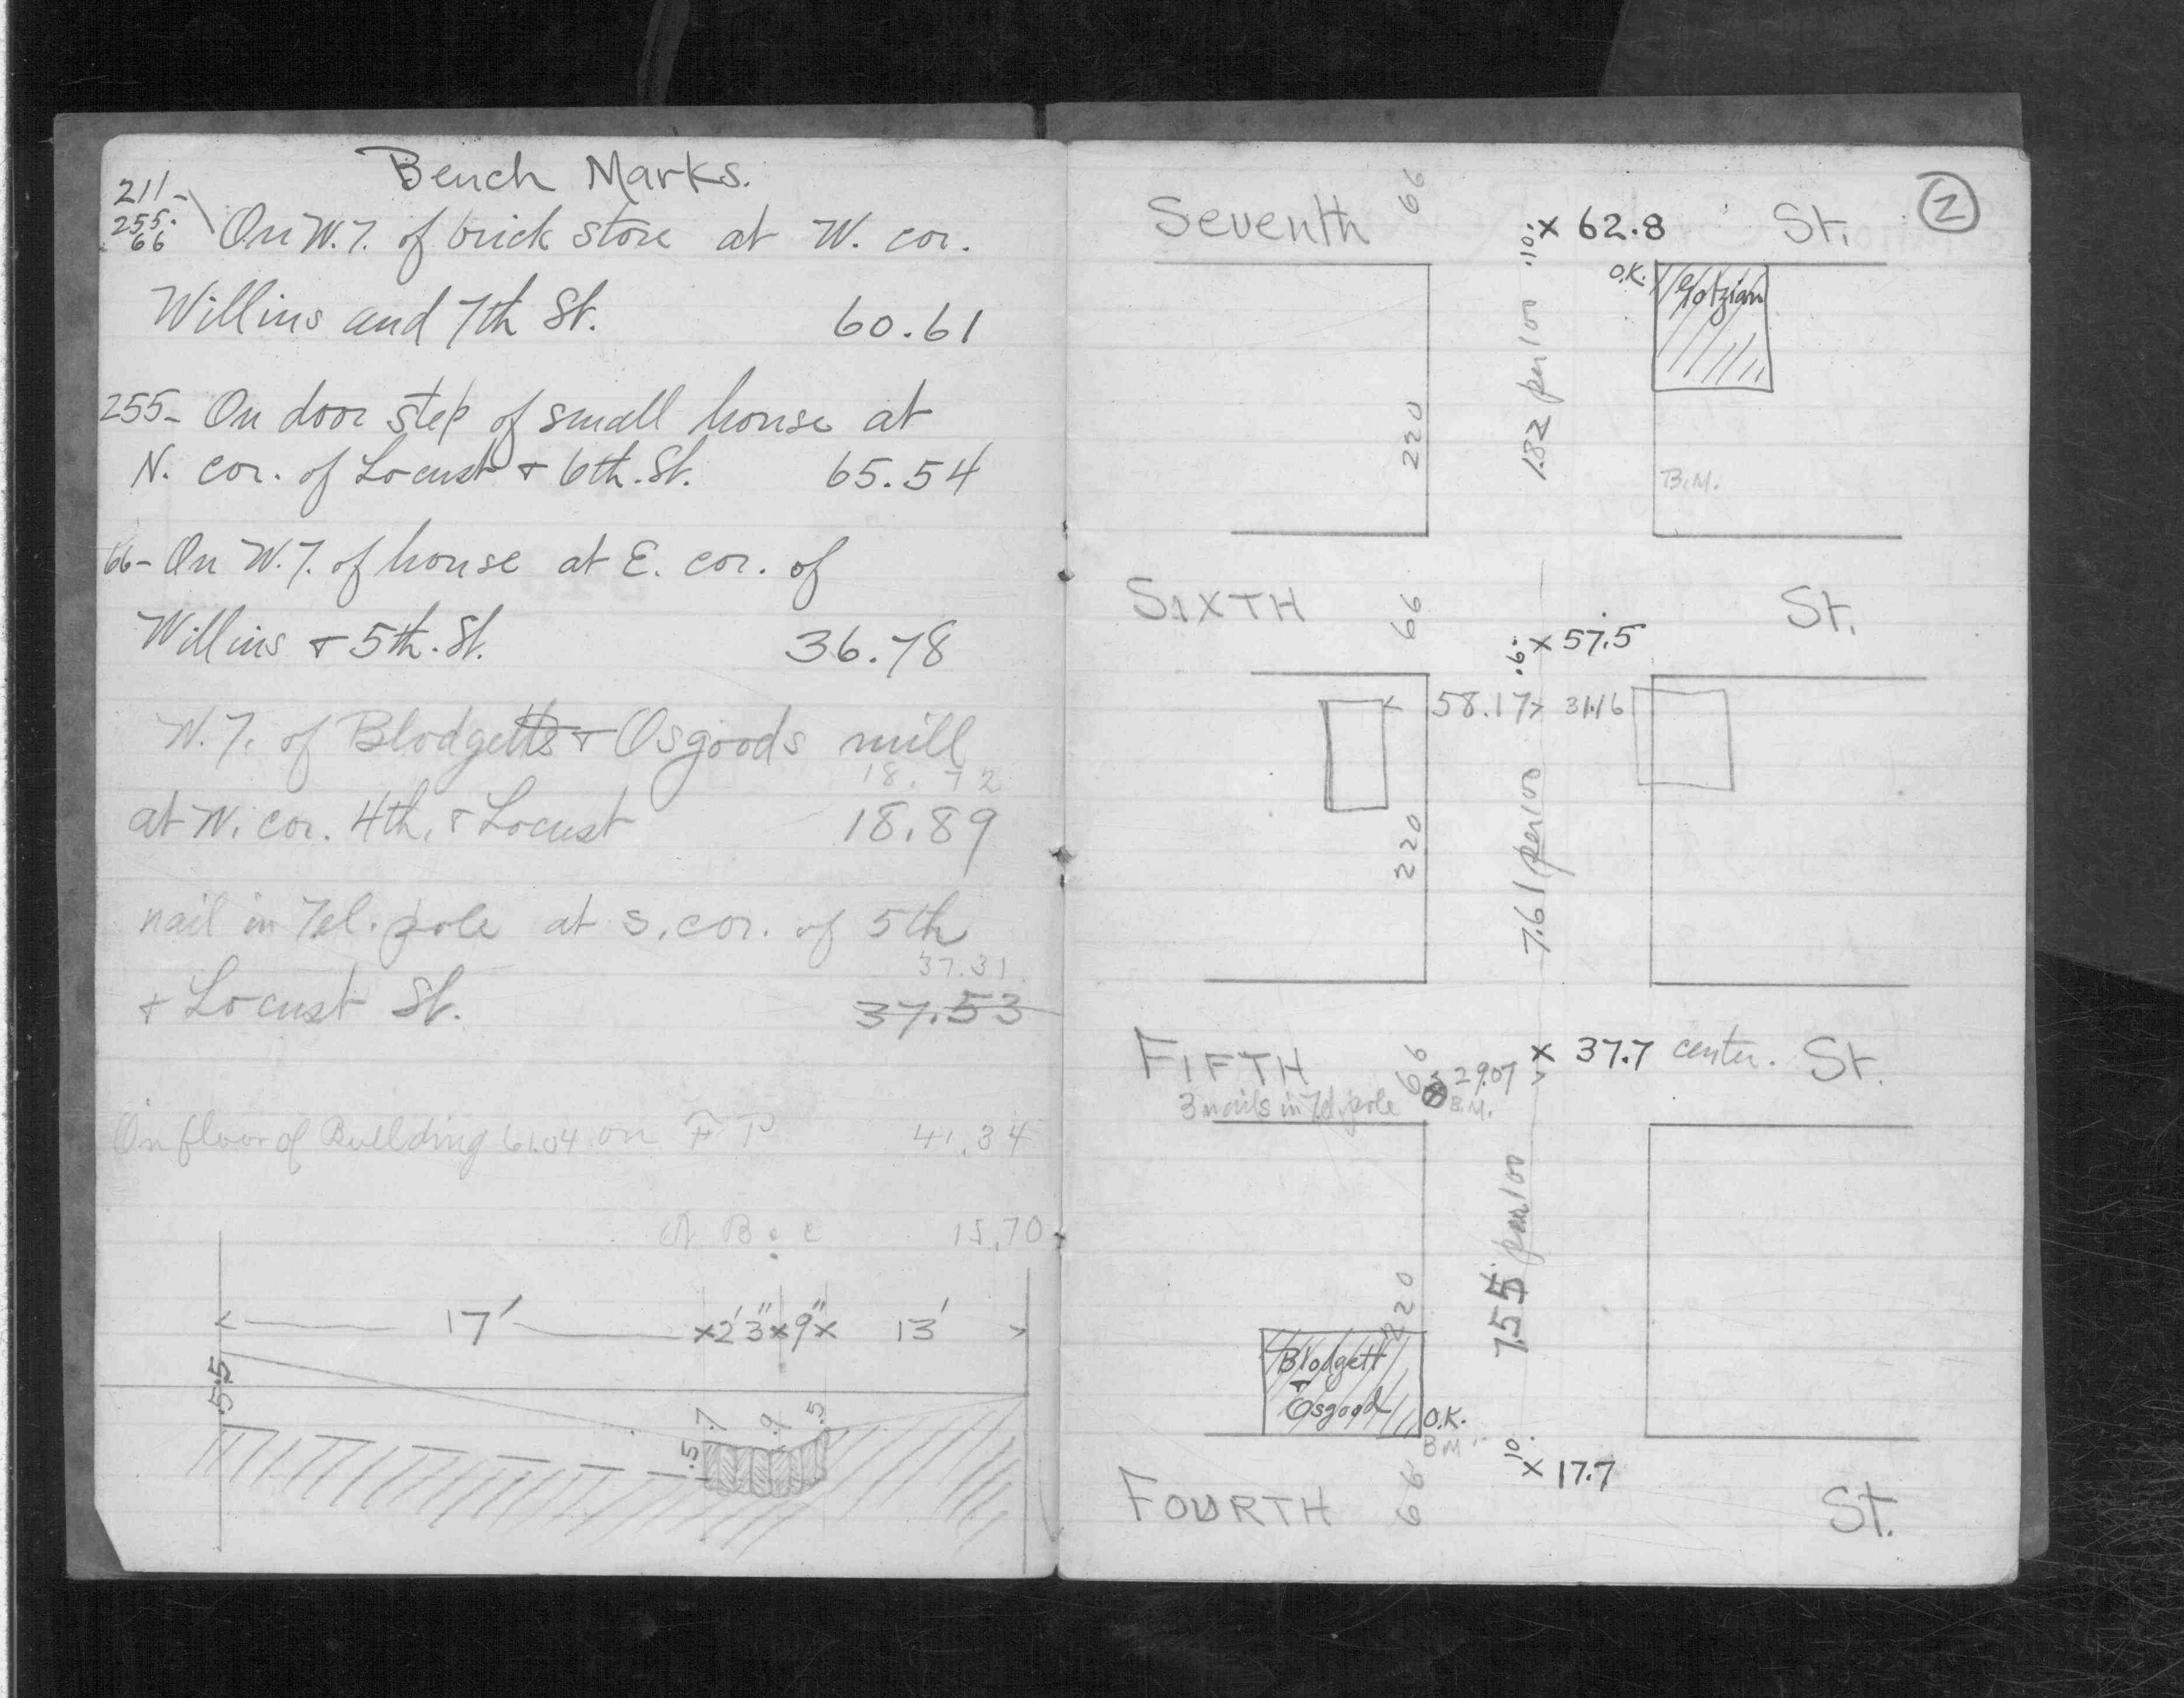 Bench Marks.
211-
255-
66
On W.T. of brick store at W. cor.
Willius and 7th St. 60.61
255- On door step of small house at
N. cor. of Locust + 6th. St. 65.54
66- On W.T. of house at E. cor. of
Willius + 5th. St. 36.78
W.T. of Blodgetts + Osgoods mill
18.72
at W. cor. 4th. & Locust 18.89
nail in Tel. pole at S. cor. of 5th
37.31
+ Locust St. 37.53
On floor of Building 61.04 on F P 41.34
B 15.70
17' x2'3"x9"x 13'
5.5 .5 .7 .9 .5
2
Seventh 66 .10. x 62.8 St.
O.K. Gotzian
220 1.82 per 100
B.M.
SIXTH 66 St.
.6. x 57.5
x 58.17> 31.16
220 7.61 per 100
FIFTH 66 x 37.7 center. St.
3 nails in Tel. pole 29.07
B.M.
220 7.55 per 100
Blodgett
+
Osgood
O.K.
B.M.
.10. x 17.7
FOURTH 66 St.